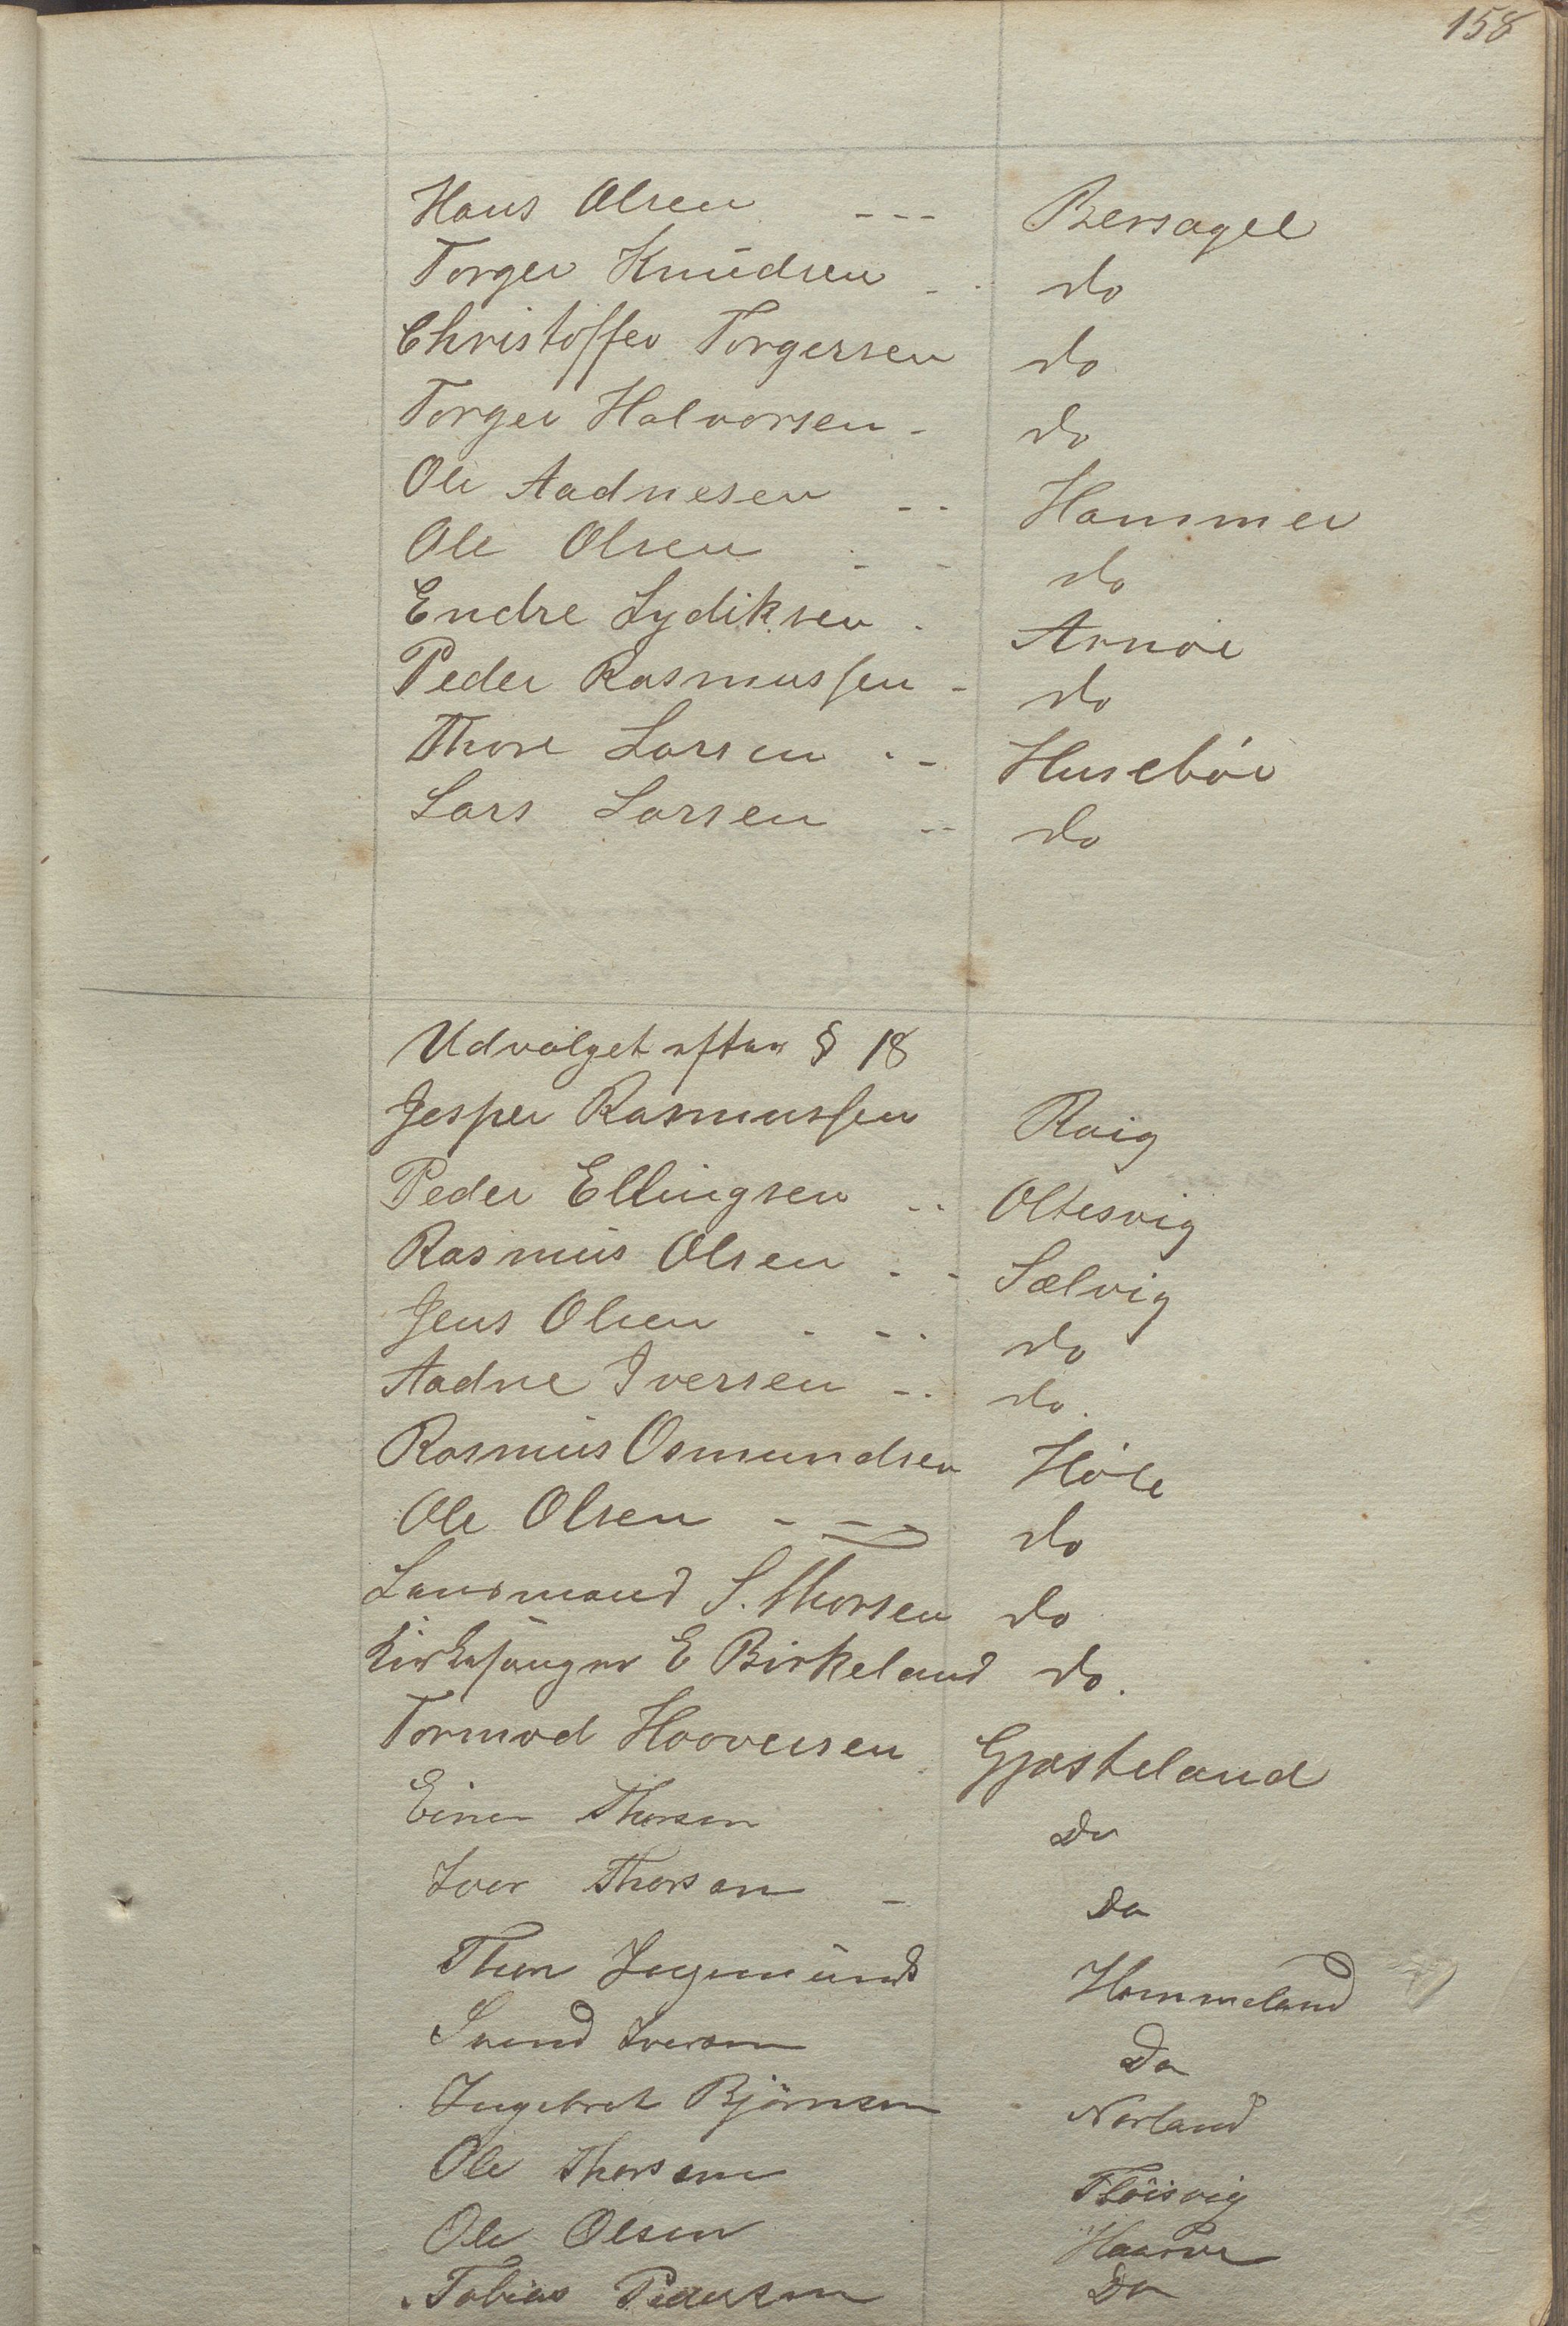 158
Hans Olsen --- Bersagel
Torger Knudsen - . do
Christoffer Torgersen do
Torger Halvorsen - do
Ole Aadnesen -- Hammer
Ole Olsen - - do
Endre Lydiksen . Arnøe
Peder Rasmussen - do
Thore Larsen . - Husebøe
Lars Larsen -- do
Udvalget efter § 18
Jesper Rasmussen Røig
Peder Ellingsen .. Oltesvig
Rasmus Olsen . - Sælvig
Jens Olsen . - . do
Aadne Iversen - . do.
Rasmus Osmundsen Høle
Ole Olsen - - - do
Lensmand S. Thorsen do
Kirkesanger E Birkeland do.
Tormod Haaversen Gjesteland
Einer Thorsen Do
Iver Thorsen - Do
Thore Ingemunds Hommeland
Svend Iversen Do
Ingebret Bjørnsen Norland
Ole Thorsen Fløisvig
Ole Olsen
Tobias Pedersen Do